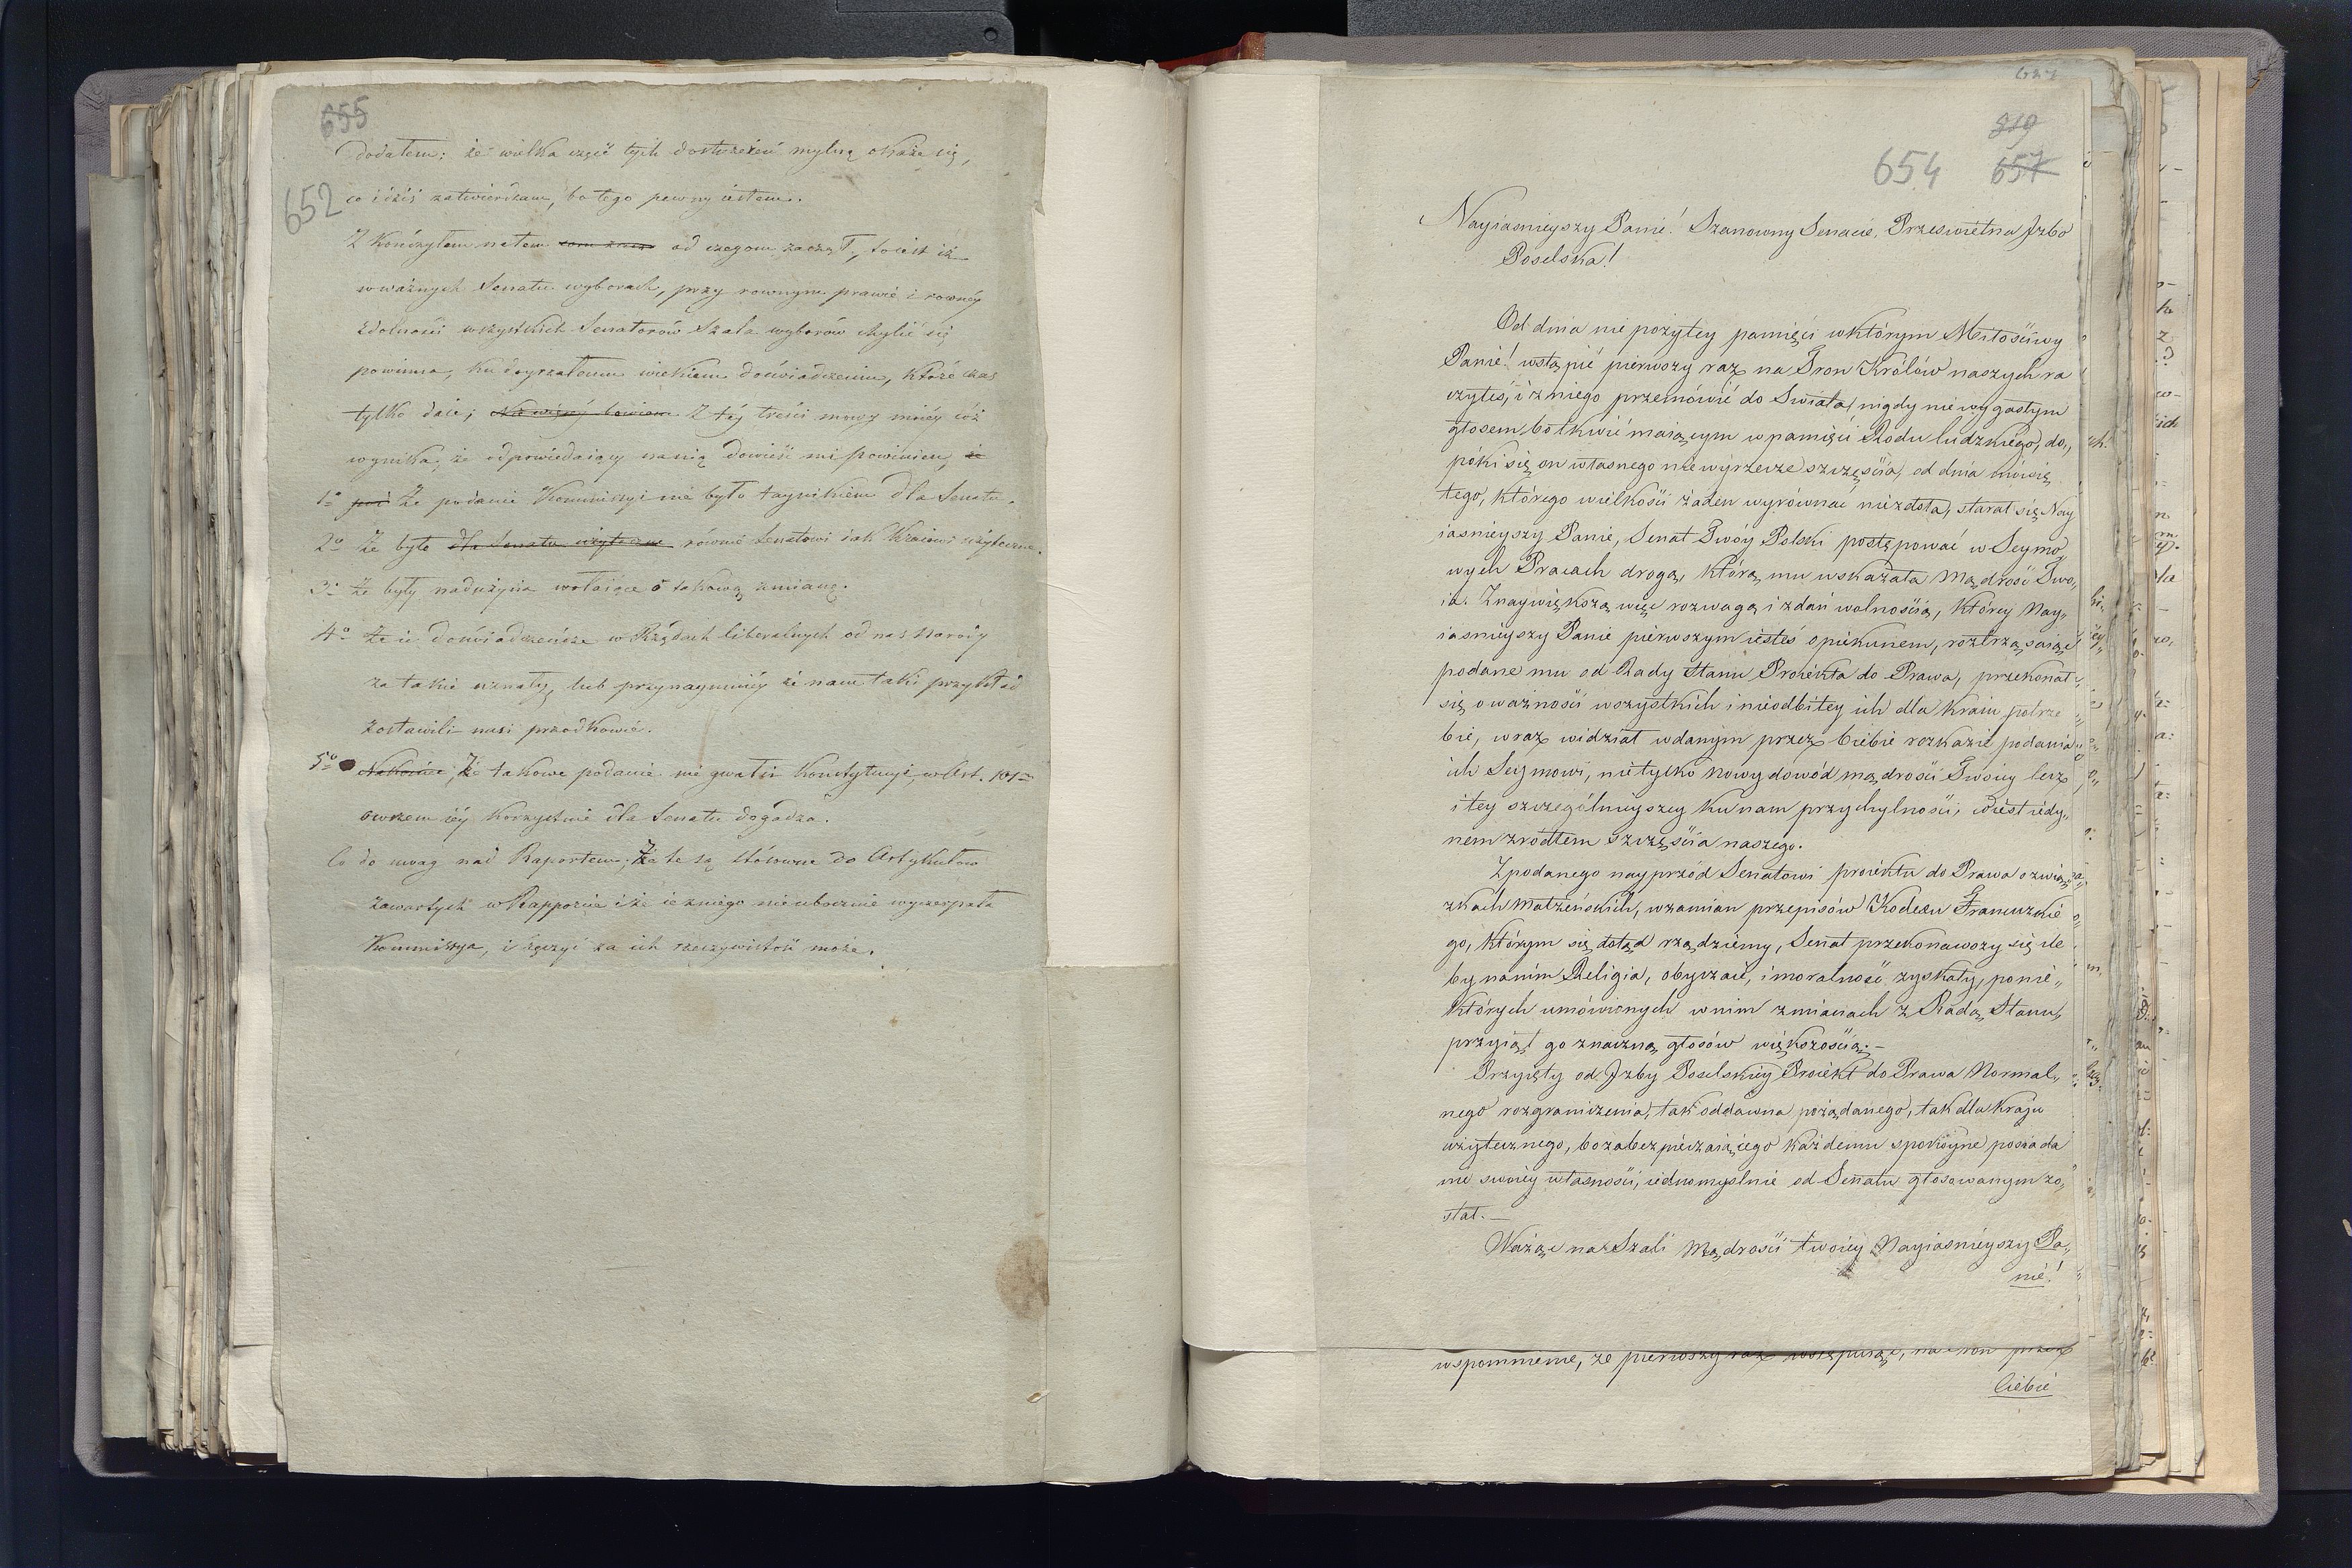 655
652
dodałem: że wielka część tych dostrzeżeń mylną okaże się,
co i dziś zatwierdzam, bo tego pewny iestem.
Zkończyłem na tem od czegom zaczął, to iest iż
w ważnych Senatu wyborach, przy rownym prawie i rowney
zdolności wszystkich Senatorów Szala wyborów chylić się
powinna, ku doyrzałemu wiekiem doświadczeniu, które czas
tylko daie; Na więcéj bowiem Z téj treści mowy moiéy cóż
wynika, że odpowiedaiący na nią dowieść mi powinien, że
1o Że podanie Kommissyi nie było taynikiem dla Senatu.
2o Że było dla Senatu użyteczne równie Senatowi iak Kraiowi użyteczne.
3o Że były nadużycia wołaiące o takową zmianę.
4o Że ie doświadczeńsze w Rządach liberalnych od nas Narody
za takie uznały, lub przynaymniéy że nam taki przykład
zostawili nasi przodkowie.
5o Nakoniec, Że takowe podanie nie gwałci Konstytucyi, w Art. 101
owszem iéy korzystnie dla Senatu dogadza.
Co do uwag nad Raportem, Że te są stósowne do Artykułów
zawartych w Rapporcie i że ie z niego nieubocznie wyczerpała
Kommissya, i ręczyć za ich rzeczywistość może.
819
654 657
Nayiasnieyszy Panie! Szanowny Senacie, Przeswietna Jzbo
Poselska!
Od dnia nie pożytey pamięci w którym Miłościwy
Panie! wstąpić pierwszy raz na Tron Królów naszych ra
czyłeś, i z niego przemówić do Swiata, nigdy nie wygasłym
głosem, bo tkwić maiącym w pamięci Rodu ludzkiego, do„
póki się on własnego nie wyrzecze szczęścia, od dnia mówię
tego, którego wielkości żaden wyrównać niezdoła, starał się Nay
iasnieyszy Panie, Senat Twóy Polski postępować w Seymo„
wych Pracach drogą, którą mu wskazała Mądrość Two„
ia. Znaywiększą więc rozwagą i zdań wolnością, którey Nay„
iasnieyszy Panie pierwszym iesteś opiekunem, roztrząsaiąc
podane mu od Rady Stanu Proiekta do Prawa, przekonał
się o ważności wszystkich i nieodbitey ich dla Kraiu potrze
bie, wraz widział w danym przez Ciebie rozkazie podania
ich Seymowi, nietylko nowy dowód mądrości Twoiey lecz
i tey szczególnieyszey ku nam przychylności, co iest iedy„
nem zrodłem szczęścia naszego.
Z podanego nayprzód Senatowi proiektu do Prawa o zwią„
zkach Małżeńskich, wzamian przepisów Kodexu Francuzkie
go, którym się dotąd rządziemy, Senat przekonawszy się ile
by na nim Religia, obyczaie, i moralność zyskały, po nie„
których umówionych w nim zmianach z Radą Stanu,
przyiął go znaczną głosów większością.—
Przyięty od Jzby Poselskiey Proiekt do Prawa Normal„
nego rozgraniczenia, tak oddawna pożądanego, tak dla kraju
użytecznego, bo zabezpieczaiącego każdemu spokoyne posiada
nie swoiey własności, iednomyslnie od Senatu głosowanym zo„
stał.—
Ważąc na Szali Mądrości twoiey Nayiasnieyszy Pa„
nie!
wspomnienie, że pierwszy raz wstępuiąc, na tron przez
Ciebie